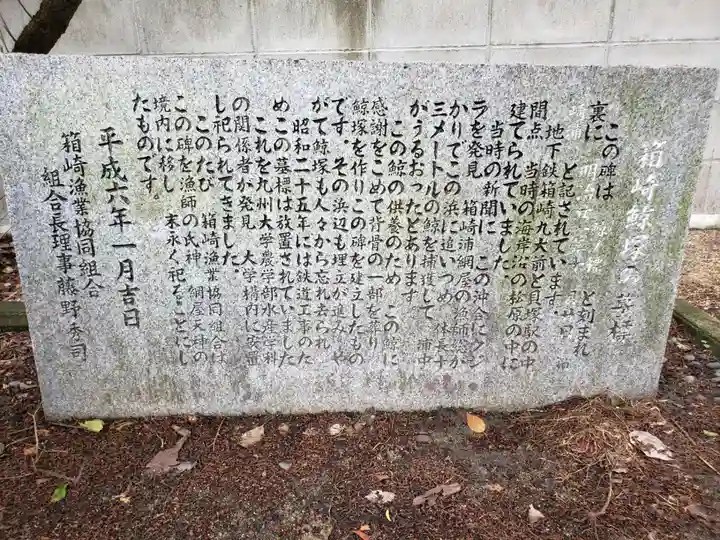 箱崎鯨塚の墓標
この碑は
裏に と刻まれ
と記されています。
地下鉄箱崎九大前と貝塚駅の中
間点 当時の海岸沿の松原の中に
建てられていました
当時の新聞に この沖合にクジ
ラを発見 箱崎浦網屋の漁師総が
かりでこの浜に追いつめ 体長十
三メートルの鯨を捕獲して 浦中
がうるおったとあります
この鯨の供養のため この鯨に
感謝をこめて背骨の一部を葬り
鯨塚を作りこの碑を建立したもの
です。その浜辺も埋立が進み や
がて鯨塚も人々から忘れ去られ
昭和二十五年には鉄道工事のた
めこの墓標は放置されていました
これを九州大学農学部水産学科
の関係者が発見 大学構内に安置
し祀られてきました。
このたび 箱崎漁業協同組合は
この碑を漁師の氏神 網屋天神の
境内に移し 末永く祀ることにし
たものです。
平成六年一月吉日
箱崎漁業協同組合
組合長理事藤野秀司